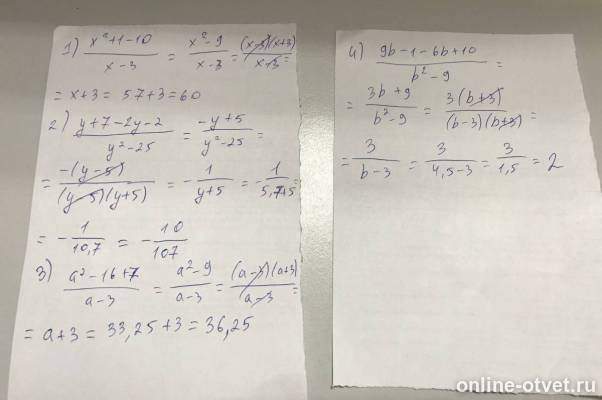 1) (x²+1-10)/(x-3) = (x²-9)/(x-3) = ((x-3)(x+3))/(x-3) =
= x+3 = 57+3=60
2) (y+7-2y-2)/(y²-25) = (-y+5)/(y²-25) =
= (-(y-5))/((y-5)(y+5)) = -1/(y+5) = -1/(5,7+5) =
= -1/(10,7) = -10/107
3) (a²-16+7)/(a-3) = (a²-9)/(a-3) = ((a-3)(a+3))/(a-3) =
= a+3 = 33,25+3 = 36,25
4) (9b-1-6b+10)/(b²-9) =
= (3b+9)/(b²-9) = (3(b+3))/((b-3)(b+3)) =
= 3/(b-3) = 3/(4,5-3) = 3/(1,5) = 2
online-otvet.ru